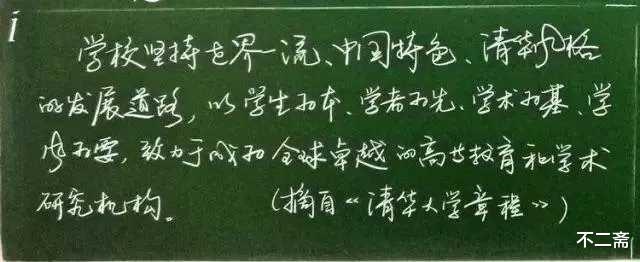 i
学校坚持世界一流、中国特色、清华风格
的发展道路，以学生为本、学者为先、学术为基、学
风为要，致力于成为全球卓越的高等教育和学术
研究机构。 （摘自《清华大学章程》）
不二斋